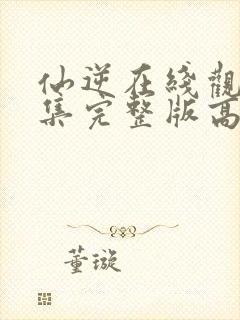 仙逆在綫觀
集完整版高
董璇